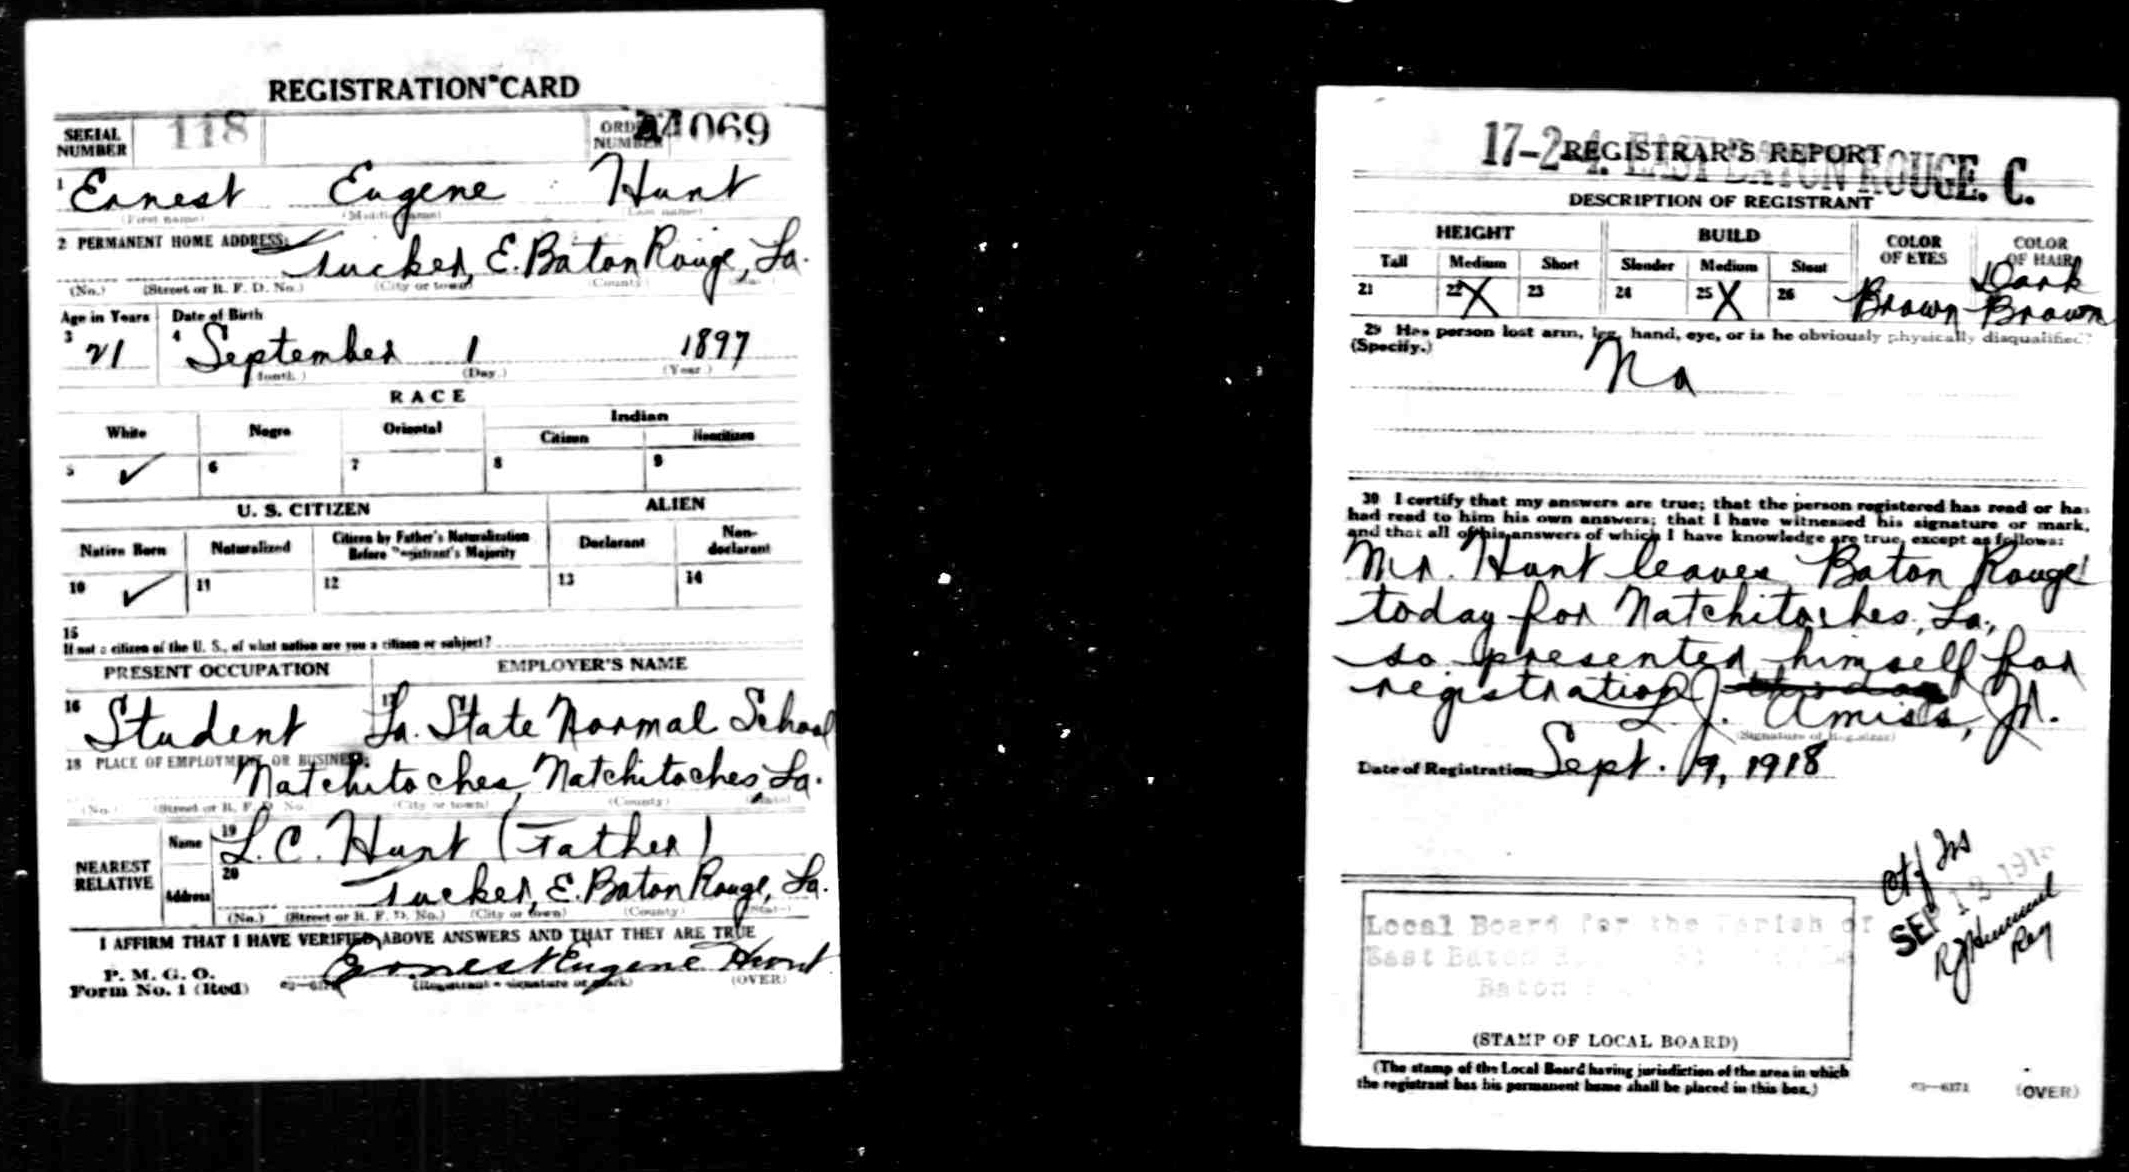 REGISTRATION CARD
SERIAL NUMBER 118 ORDER NUMBER A4069
1 Ernest Eugene Hunt
(First name) (Middle name) (Last name)
2 PERMANENT HOME ADDRESS:
Tucker, E. Baton Rouge, La.
(No.) (Street or R. F. D. No.) (City or town) (County) (State)
Age in Years Date of Birth
3 21 4 September 1 1897
(Month.) (Day.) (Year.)
RACE
White Negro Oriental Indian
Citizen Noncitizen
5 ✓ 6 7 8 9
U. S. CITIZEN ALIEN
Native Born Naturalized Citizen by Father's Naturalization Before Registrant's Majority Declarant Non-declarant
10 ✓ 11 12 13 14
15
If not a citizen of the U. S., of what nation are you a citizen or subject?
PRESENT OCCUPATION EMPLOYER'S NAME
16 Student 17 La. State Normal School
18 PLACE OF EMPLOYMENT OR BUSINESS:
Natchitoches, Natchitoches, La.
(No.) (Street or R. F. D. No.) (City or town) (County) (State)
NEAREST RELATIVE
Name 19 L. C. Hunt (Father)
Address 20 Tucker, E. Baton Rouge, La.
(No.) (Street or R. F. D. No.) (City or town) (County) (State)
I AFFIRM THAT I HAVE VERIFIED ABOVE ANSWERS AND THAT THEY ARE TRUE
P. M. G. O.
Form No. 1 (Red) Ernest Eugene Hunt
(Registrant's signature or mark) (OVER)
17-2-4. EAST BATON ROUGE. C.
REGISTRAR'S REPORT
DESCRIPTION OF REGISTRANT
HEIGHT BUILD COLOR OF EYES COLOR OF HAIR
Tall Medium Short Slender Medium Stout
21 22 X 23 24 25 X 26 Brown Dark Brown
29 Has person lost arm, leg, hand, eye, or is he obviously physically disqualified?
(Specify.)
No
30 I certify that my answers are true; that the person registered has read or has
had read to him his own answers; that I have witnessed his signature or mark,
and that all of his answers of which I have knowledge are true, except as follows:
Mr. Hunt leaves Baton Rouge
today for Natchitoches, La.,
so presented himself for
registration
L. J. Amiss, Jr.
(Signature of Registrar)
Date of Registration Sept. 9, 1918
SEP 13 191
Local Board for the Parish of
East Baton
Baton
(STAMP OF LOCAL BOARD)
(The stamp of the Local Board having jurisdiction of the area in which
the registrant has his permanent home shall be placed in this box.)
03—6171 (OVER)